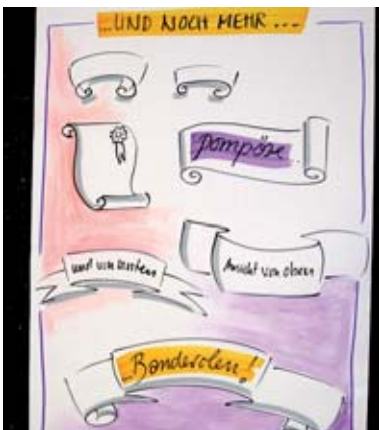 ...UND NOCH MEHR...
pompöse
und von unten
Ansicht von oben
Banderolen!